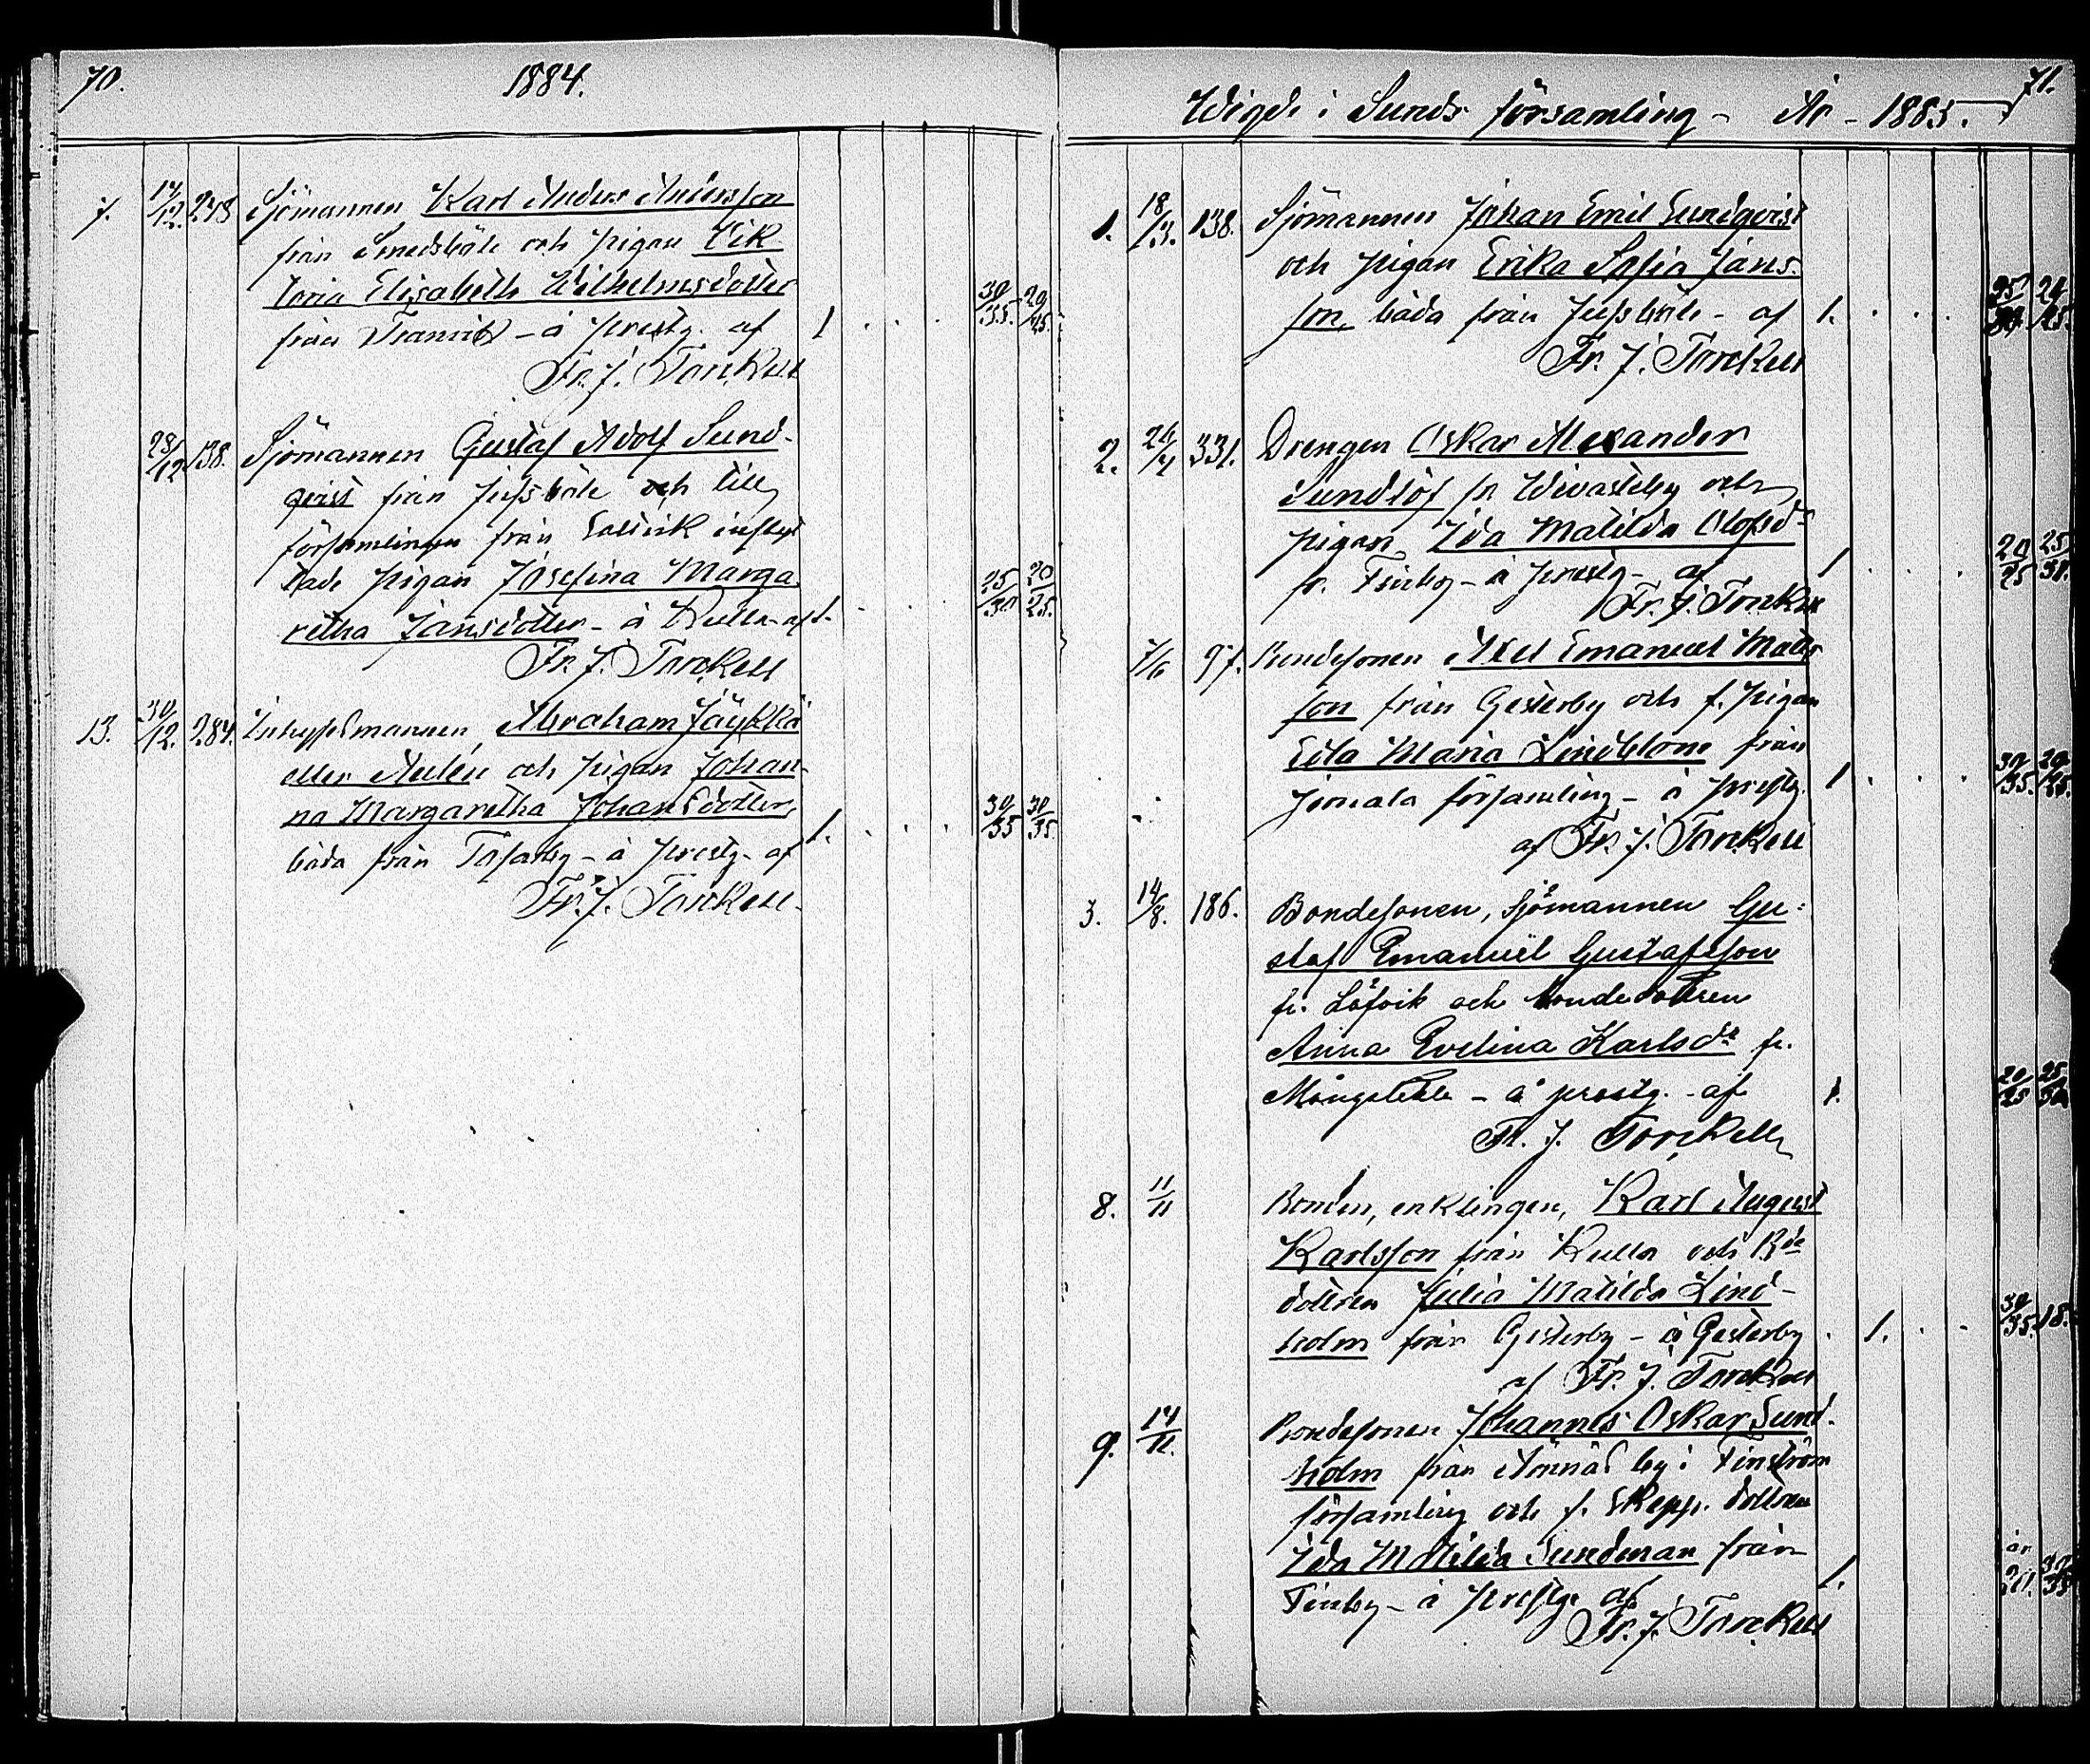 70.
1884.
7. 17/12. 278 Sjömannen Karl Anders Andersson
från Smedsböle och pigan Vik
toria Elisabeth Wilhelmsdotter
från Tranvik – å prestg. af 1 . . . 30/35. 20/25.
Fr. J. Torckell
28/12 138. Sjömannen Gustaf Adolf Sund-
qvist från Jussböle och till
församlingen från Saltvik inflyt
tade pigan Josefina Marga
retha Jansdotter – å Kulla – af 1. 25/30 20/25.
Fr. J. Torckell
13. 30/12. 284. Inhyssmannen, Abraham Jäykkä
eller Aulén och pigan Johan-
na Margaretha Johansdotter,
båda från Tosarby – å prestg. af 1. . . . 30/35 30/35.
Fr. J. Torckell
71.
Wigde i Sunds församling – År – 1885.
1. 18/3. 138. Sjömannen Johan Emil Sundqvist
och pigan Erika Sofia Jans-
son, båda från Jussböle – af 1. . . . 25/30 20/25.
Fr. J. Torckell
2. 26/4 331. Drengen Oskar Alexander
Sundlöf fr. Wivasteby och
pigan Ida Matilda Olofsdr
fr. Finby – å prestg – af 1 . . . 20/25 25/30.
Fr. J. Torckell
7/6 97. Bondesonen Axel Emanuel Matts
son från Gesterby och f. pigan
Edla Maria Lindblom från
Jomala församling – å prestg. 1 . . . 30/35. 20/25.
af Fr. J. Torckell
3. 14/8. 186. Bondesonen, Sjömannen Gu-
staf Emanuel Gustafsson
fr. Löfvik och bondedottren
Anna Evelina Karlsdr fr.
Mångstekta – å prestg. – af 1. 20/25 25/30
Fr. J. Torckell
8. 11/11 Bonden, enklingen, Karl August
Karlsson från Kulla och Bde
dottren Julia Matilda Lind-
holm från Gesterby – å Gesterby . 1. . . 30/35. 18.
af Fr. J. Torckell
9. 14/11. Bondesonen Johannes Oskar Sund-
holm från Ännäs by i Finström
församling och f. Skepp. dottren
Ida Matilda Sundman från
Finby – å prestg. af 1. år 20. 30/35
Fr. J. Torckell